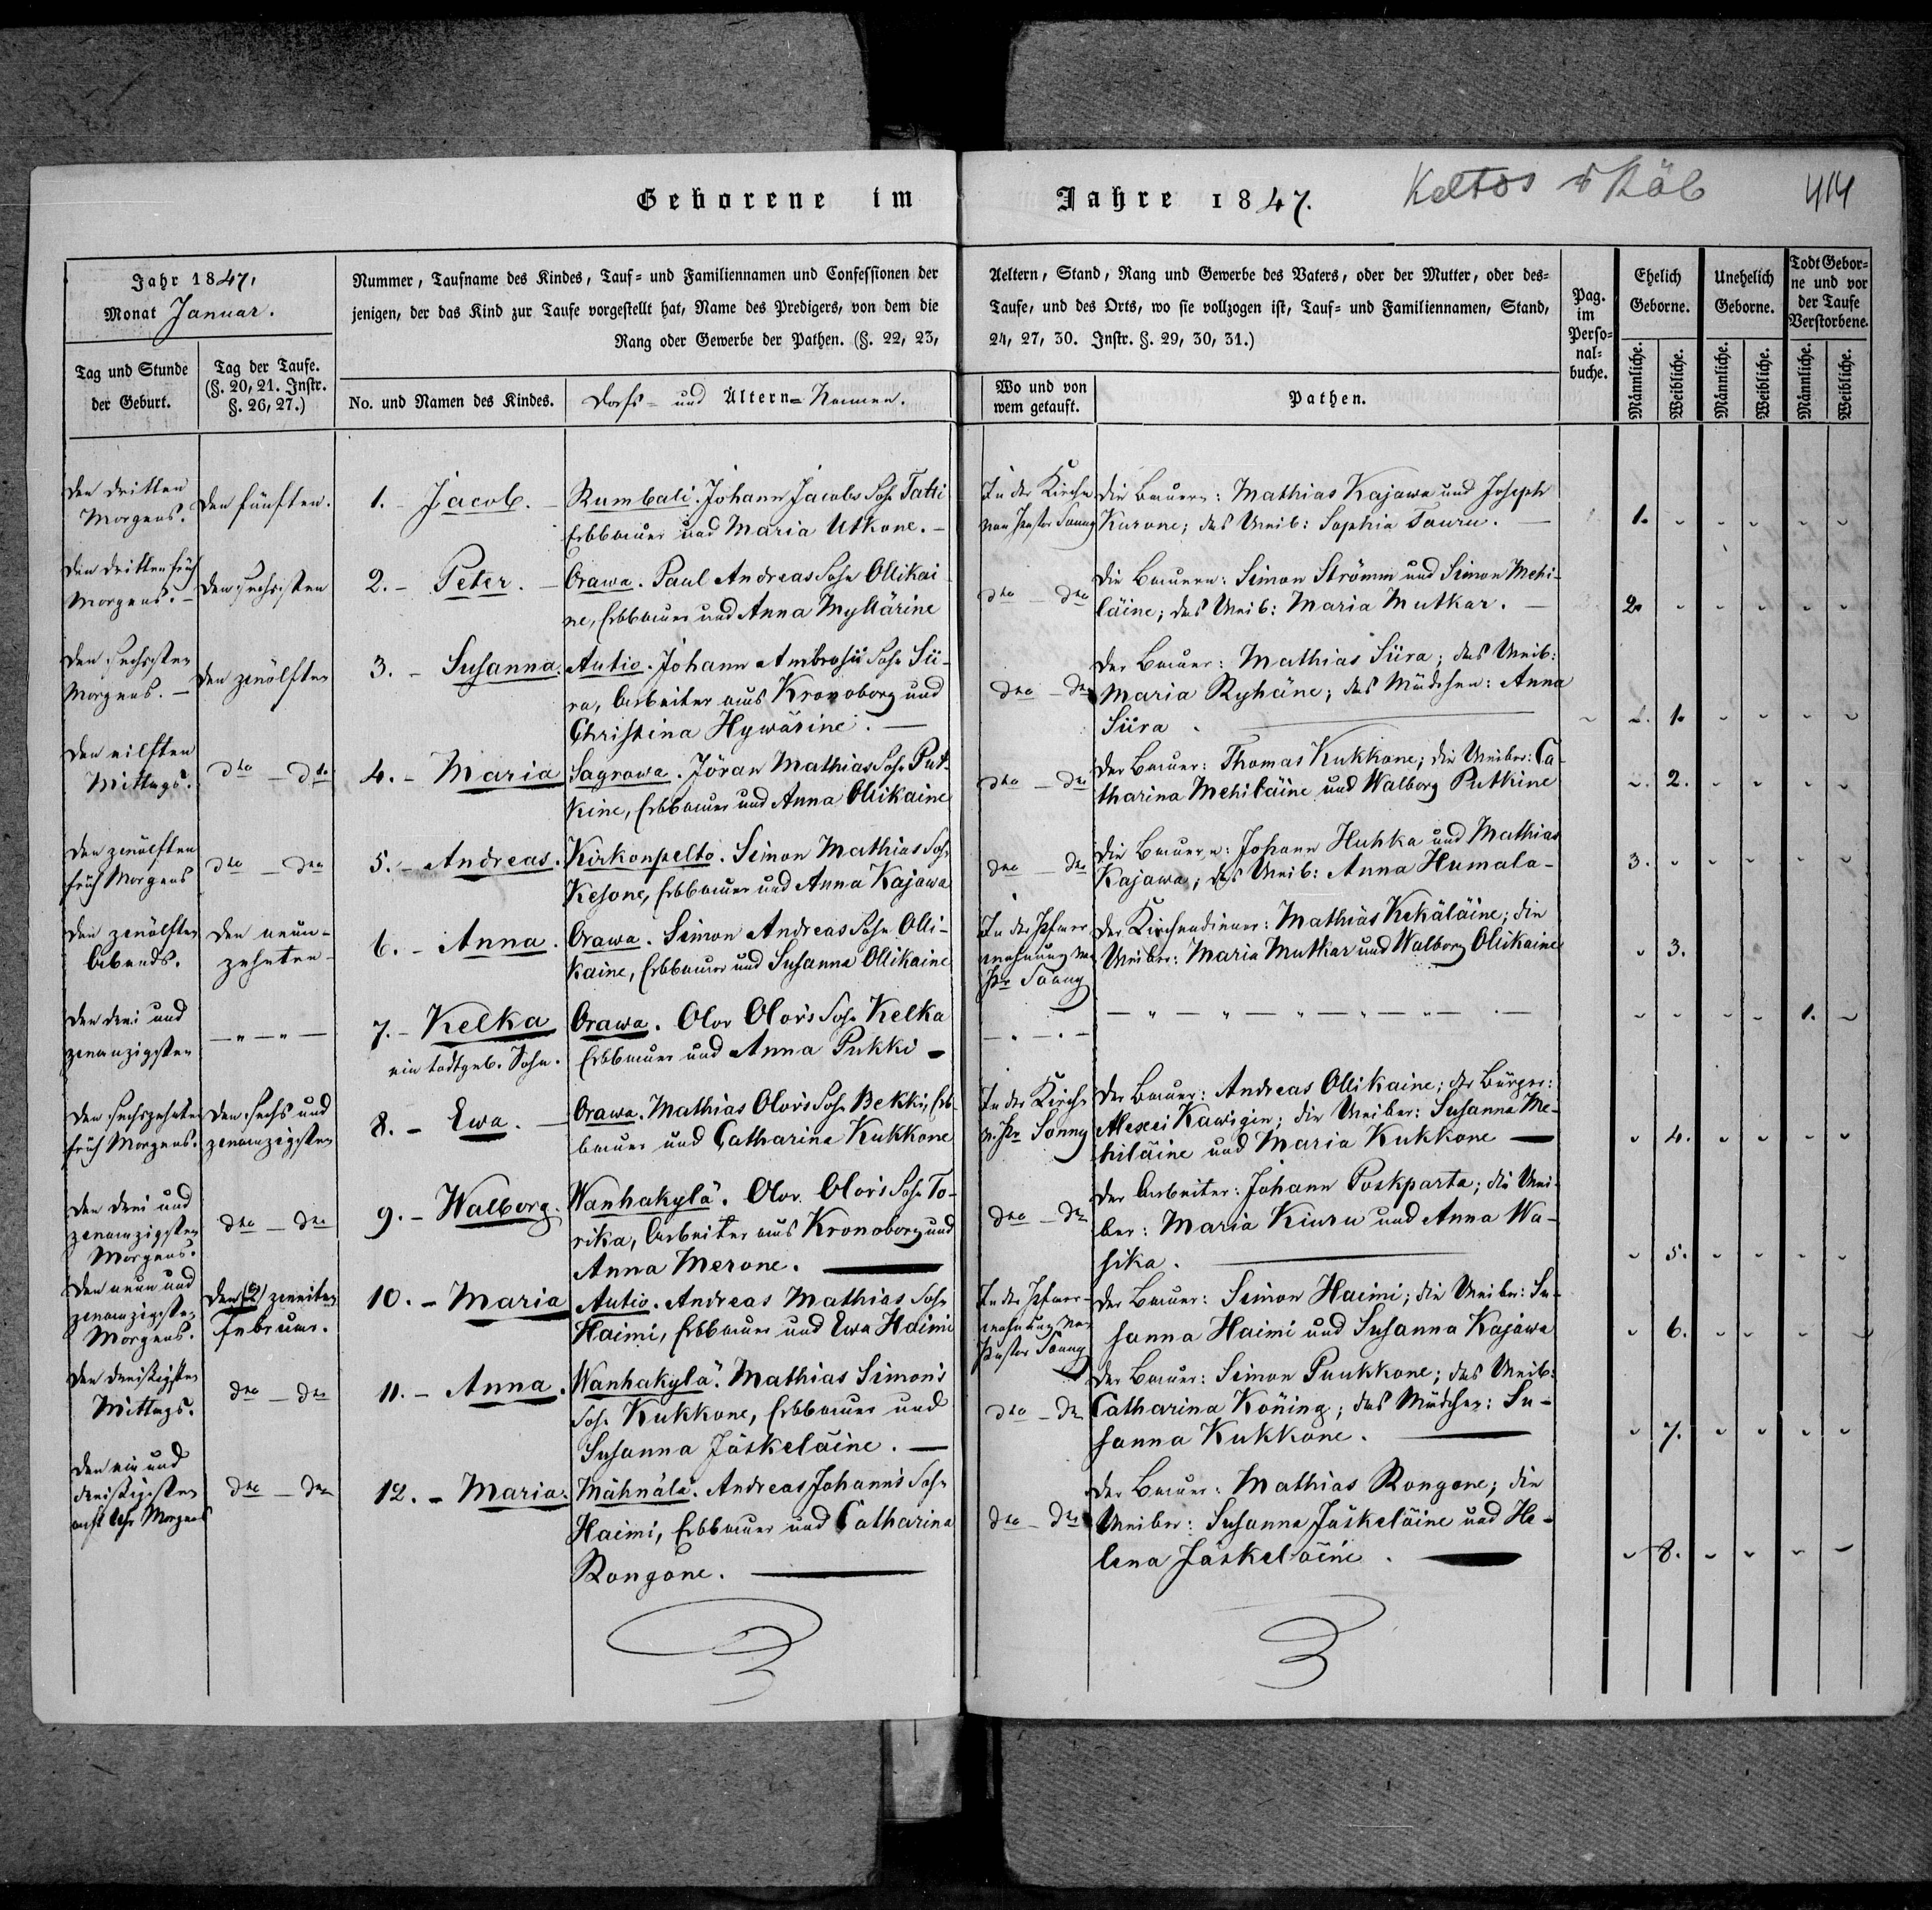 Geborene im Jahre 1847.
Keltos
414
Jahr 1847,
Monat Januar.
Tag und Stunde
der Geburt.
Tag der Taufe.
(§. 20, 21. Instr.
§. 26, 27.)
Nummer, Taufname des Kindes, Tauf- und Familiennamen und Confessionen der Aeltern, Stand, Rang und Gewerbe des Vaters, oder der Mutter, oder des-
jenigen, der das Kind zur Taufe vorgestellt hat, Name des Predigers, von dem die Taufe, und des Orts, wo sie vollzogen ist, Tauf- und Familiennamen, Stand,
Rang oder Gewerbe der Pathen. (§. 22, 23, 24, 27, 30. Instr. §. 29, 30, 31.)
No. und Namen des Kindes.
Dorfs- und Ältern-Namen.
Wo und von
wem getauft.
Pathen.
Pag.
im
Perso-
nal-
buche.
Ehelich
Geborne.
Unehelich
Geborne.
Todt Gebor-
ne und vor
der Taufe
Verstorbene.
Männliche.
Weibliche.
Männliche.
Weibliche.
Männliche.
Weibliche.
Den dritten
Morgens.
Den fünften.
1. - Jacob. -
Rumbali. Johann Jacobs Sohn Tatti
Erbbauer und Maria Utkone. -
In der Kirche
von Pastor Sonny
Die Bauern: Mathias Kajawa und Joseph
Kurone; das Weib: Sophia Tauru. -
1.
Den dritten früh
Morgens. -
Den sechsten
2. - Peter. -
Orawa. Paul Andreas Sohn Ollikai-
ne, Erbbauer und Anna Myllärine
dto - dto
Die Bauern: Simon Strömm und Simon Mehi-
läine; das Weib: Maria Mutkar. -
2.
Den sechsten
Morgens. -
Den zwölften
3. - Susanna.
Autio. Johann Ambrosii Sohn Sii-
ra, Arbeiter aus Kronoborg und
Christina Hywärine. -
dto - dto
Der Bauer: Mathias Siira; das Weib:
Maria Ryhäne; das Mädchen: Anna
Siira.
1.
Den eilften
Mittags.
dto - dto
4. - Maria
Sagrowa. Jöran Mathias Sohn Put-
kine, Erbbauer und Anna Ollikaine
dto - dto
Der Bauer: Thomas Kukkone; die Weiber: Ca-
tharina Mehiläine und Walborg Putkine
2.
Den zwölften
früh Morgens
dto - dto
5. - Andreas.
Kirkonpelto. Simon Mathias Sohn
Kesone, Erbbauer und Anna Kajawa
dto - dto
Die Bauern: Johann Huhka und Mathias
Kajawa; das Weib: Anna Humala-
3.
Den zwölften
Abends.
Den neun-
zehnten
6. - Anna.
Orawa. Simon Andreas Sohn Olli-
kaine, Erbbauer und Susanna Ollikaine
In der Pfarr-
wohnung von
Pr Sonny
Der Kirchendiener: Mathias Kekäläine; die
Weiber: Maria Mutkar und Walborg Ollikaine
3.
Den drei und
zwanzigsten
7. - Kelka
ein todtgeb. Sohn.
Orawa. Olov Olov's Sohn Kelka
Erbbauer und Anna Pukki -
1.
Den sechszehnten
früh Morgens.
Den sechs und
zwanzigsten
8. - Ewa. -
Orawa. Mathias Olov's Sohn Bekki, Erb-
bauer und Catharina Kukkone
In der Kirche
v. Pr Sonny
Der Bauer: Andreas Ollikaine; der Bürger:
Alexei Kawigin; die Weiber: Susanna Me-
hiläine und Maria Kukkone -
4.
Den drei und
zwanzigsten
Morgens.
dto - dto
9. - Walborg.
Wanhakylä. Olov Olov's Sohn To-
rika, Arbeiter aus Kronoborg und
Anna Merone. -
dto - dto
Der Arbeiter: Johann Poskparta; die Wei-
ber: Maria Kiuru und Anna Wa-
sika.
5.
Den neun und
zwanzigsten
Morgens.
Den (2) zweiten
Februar.
10. - Maria
Autio. Andreas Mathias Sohn
Haimi, Erbbauer und Ewa Haimi
In der Pfarr-
wohnung von
Pastor Sonny
Der Bauer: Simon Haimi; die Weiber: Su-
sanna Haimi und Susanna Kajawa
6.
Den dreißigsten
Mittags.
dto - dto
11. - Anna.
Wanhakylä. Mathias Simon's
Sohn Kukkone, Erbbauer und
Susanna Jäskeläine. -
dto - dto
Der Bauer: Simon Puukkone; das Weib:
Catharina Köning; das Mädchen: Su-
sanna Kukkone.
7.
Den ein und
dreißigsten
acht Uhr Morgens
dto - dto
12. - Maria.
Mähnälä. Andreas Johann's Sohn
Haimi, Erbbauer und Catharina
Rongone.
dto - dto
Der Bauer: Mathias Rongone; die
Weiber: Susanna Jäskeläine und He-
lena Jäskeläine.
8.